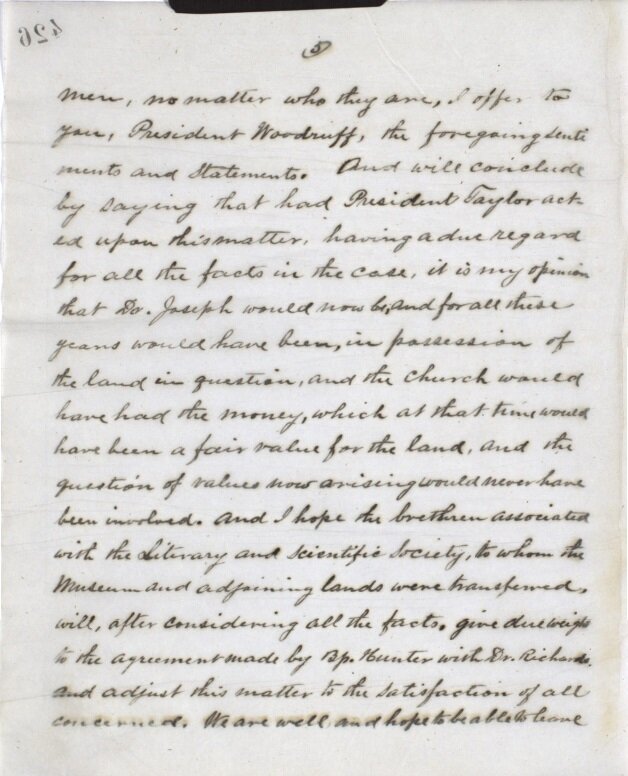 426
5
men, no matter who they are, I offer to
you, President Woodruff, the foregoing senti
ments and statements. And will conclude
by saying that had President Taylor act-
ed upon this matter, having a due regard
for all the facts in the case, it is my opinion
that Dr. Joseph would now be, and for all these
years would have been, in possession of
the land in question, and the Church would
have had the money, which at that time would
have been a fair value for the land, and the
question of values now arising would never have
been involved. And I hope the brethren associated
with the Literary and Scientific Society, to whom the
Museum and adjoining lands were transferred,
will, after considering all the facts, give due weight
to the agreement made by Bp. Hunter with Dr. Richards,
and adjust this matter to the satisfaction of all
concerned. We are well and hope to be able to leave